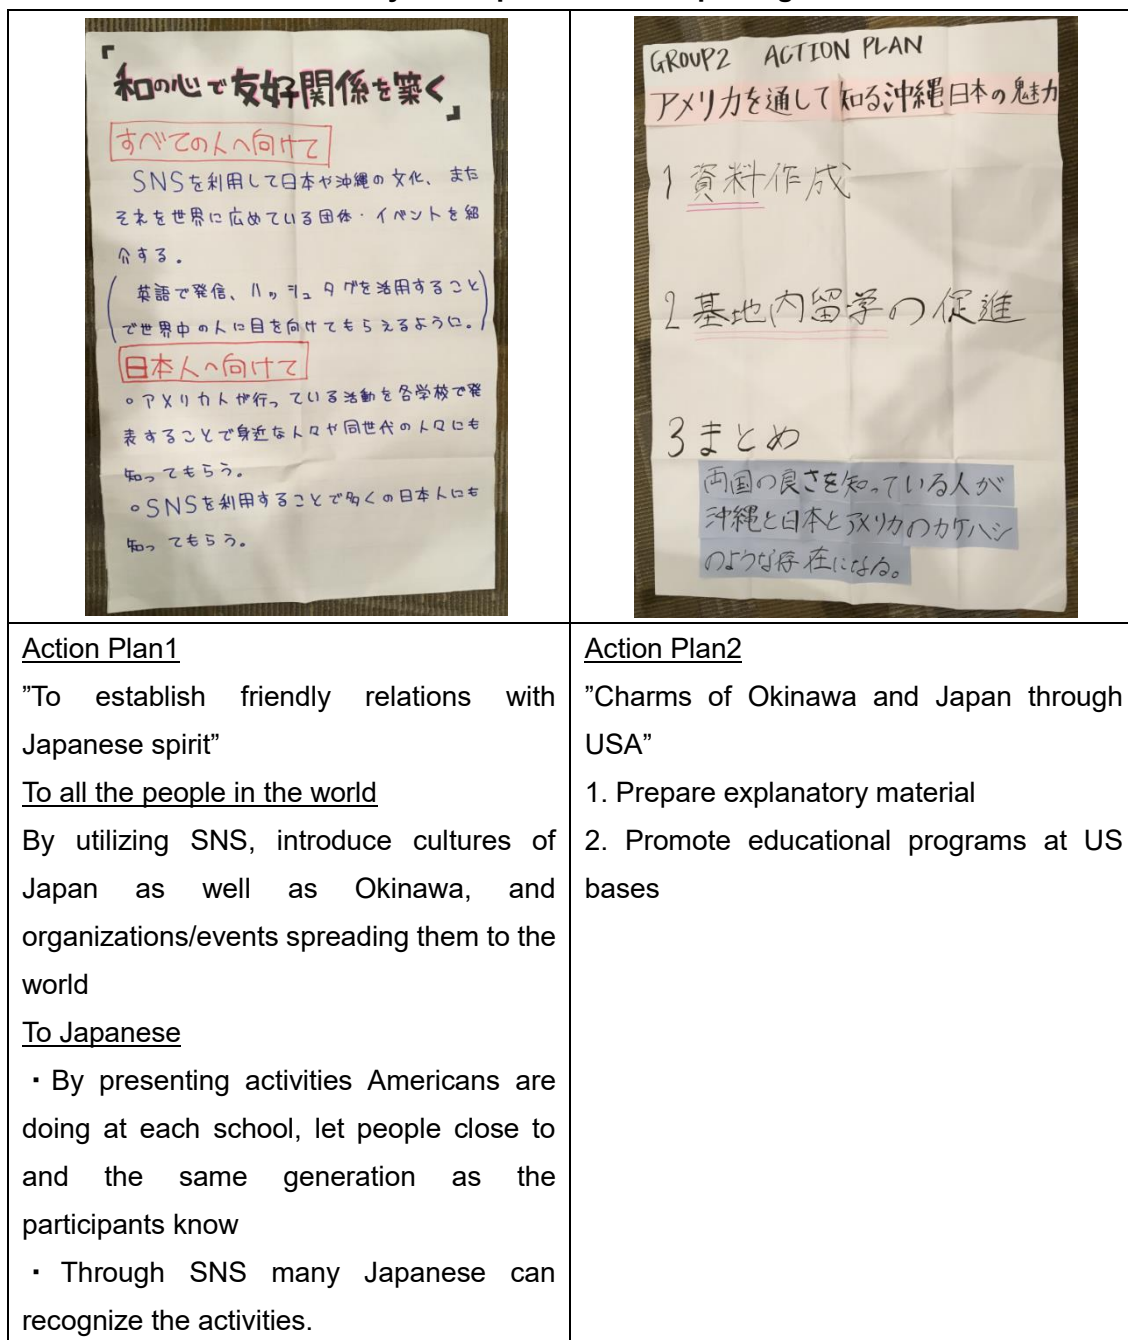 「和の心で友好関係を築く」
すべての人へ向けて
SNSを利用して日本や沖縄の文化、また
それを世界に広めている団体・イベントを紹
介する。
(英語で発信、ハッシュタグを活用すること
で世界中の人に目を向けてもらえるように。)
日本人へ向けて
・アメリカ人が行っている活動を各学校で発
表することで身近な人々や同世代の人々にも
知ってもらう。
・SNSを利用することで多くの日本人にも
知ってもらう。
GROUP2 ACTION PLAN
アメリカを通して知る沖縄日本の魅力
1 資料作成
2 基地内留学の促進
3 まとめ
両国の良さを知っている人が
沖縄と日本とアメリカのカケハシ
のような存在になる。
Action Plan1
”To establish friendly relations with
Japanese spirit”
To all the people in the world
By utilizing SNS, introduce cultures of
Japan as well as Okinawa, and
organizations/events spreading them to the
world
To Japanese
・By presenting activities Americans are
doing at each school, let people close to
and the same generation as the
participants know
・Through SNS many Japanese can
recognize the activities.
Action Plan2
”Charms of Okinawa and Japan through
USA”
1. Prepare explanatory material
2. Promote educational programs at US
bases